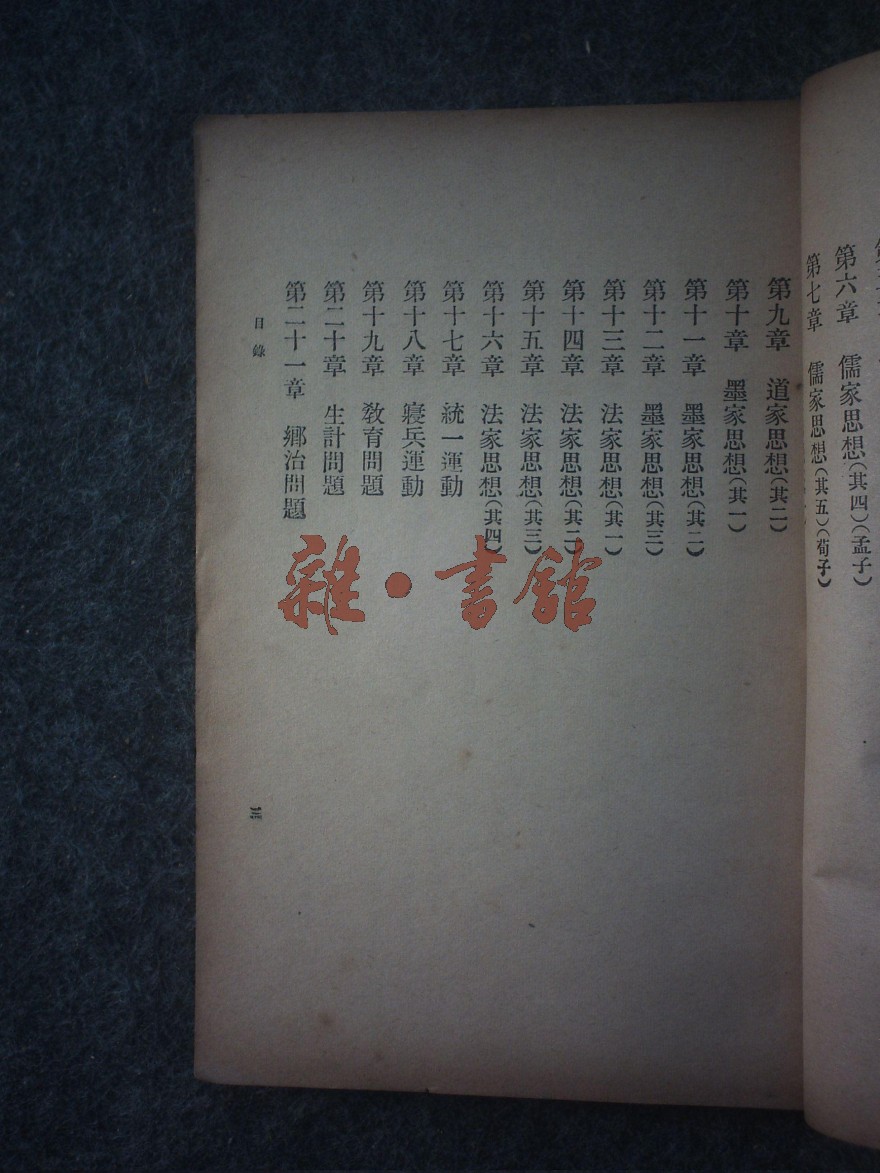 第六章　儒家思想（其四）（孟子）
第七章　儒家思想（其五）（荀子）
第九章　道家思想（其二）
第十章　墨家思想（其一）
第十一章　墨家思想（其二）
第十二章　墨家思想（其三）
第十三章　法家思想（其一）
第十四章　法家思想（其二）
第十五章　法家思想（其三）
第十六章　法家思想（其四）
第十七章　統一運動
第十八章　寢兵運動
第十九章　敎育問題
第二十章　生計問題
第二十一章　鄉治問題
目錄
雜·書館